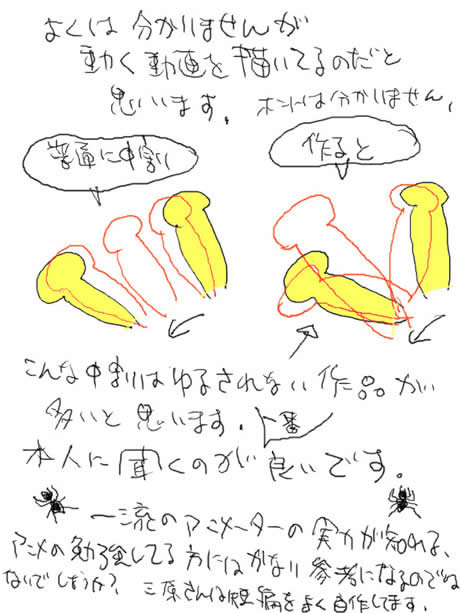 よくは分かりませんが
動く動画を描いてるのだと
思います。ホントは分かりません。
普通に中割り
作ると
こんな中割りはゆるされない作品が
多いと思います。
一番
本人に聞くのが良いです。
一流のアニメーターの実力が知れる、
アニメの勉強してる方にはかなり参考になるのでは
ないでしょうか? 三原さんは短編をよく自作してます。